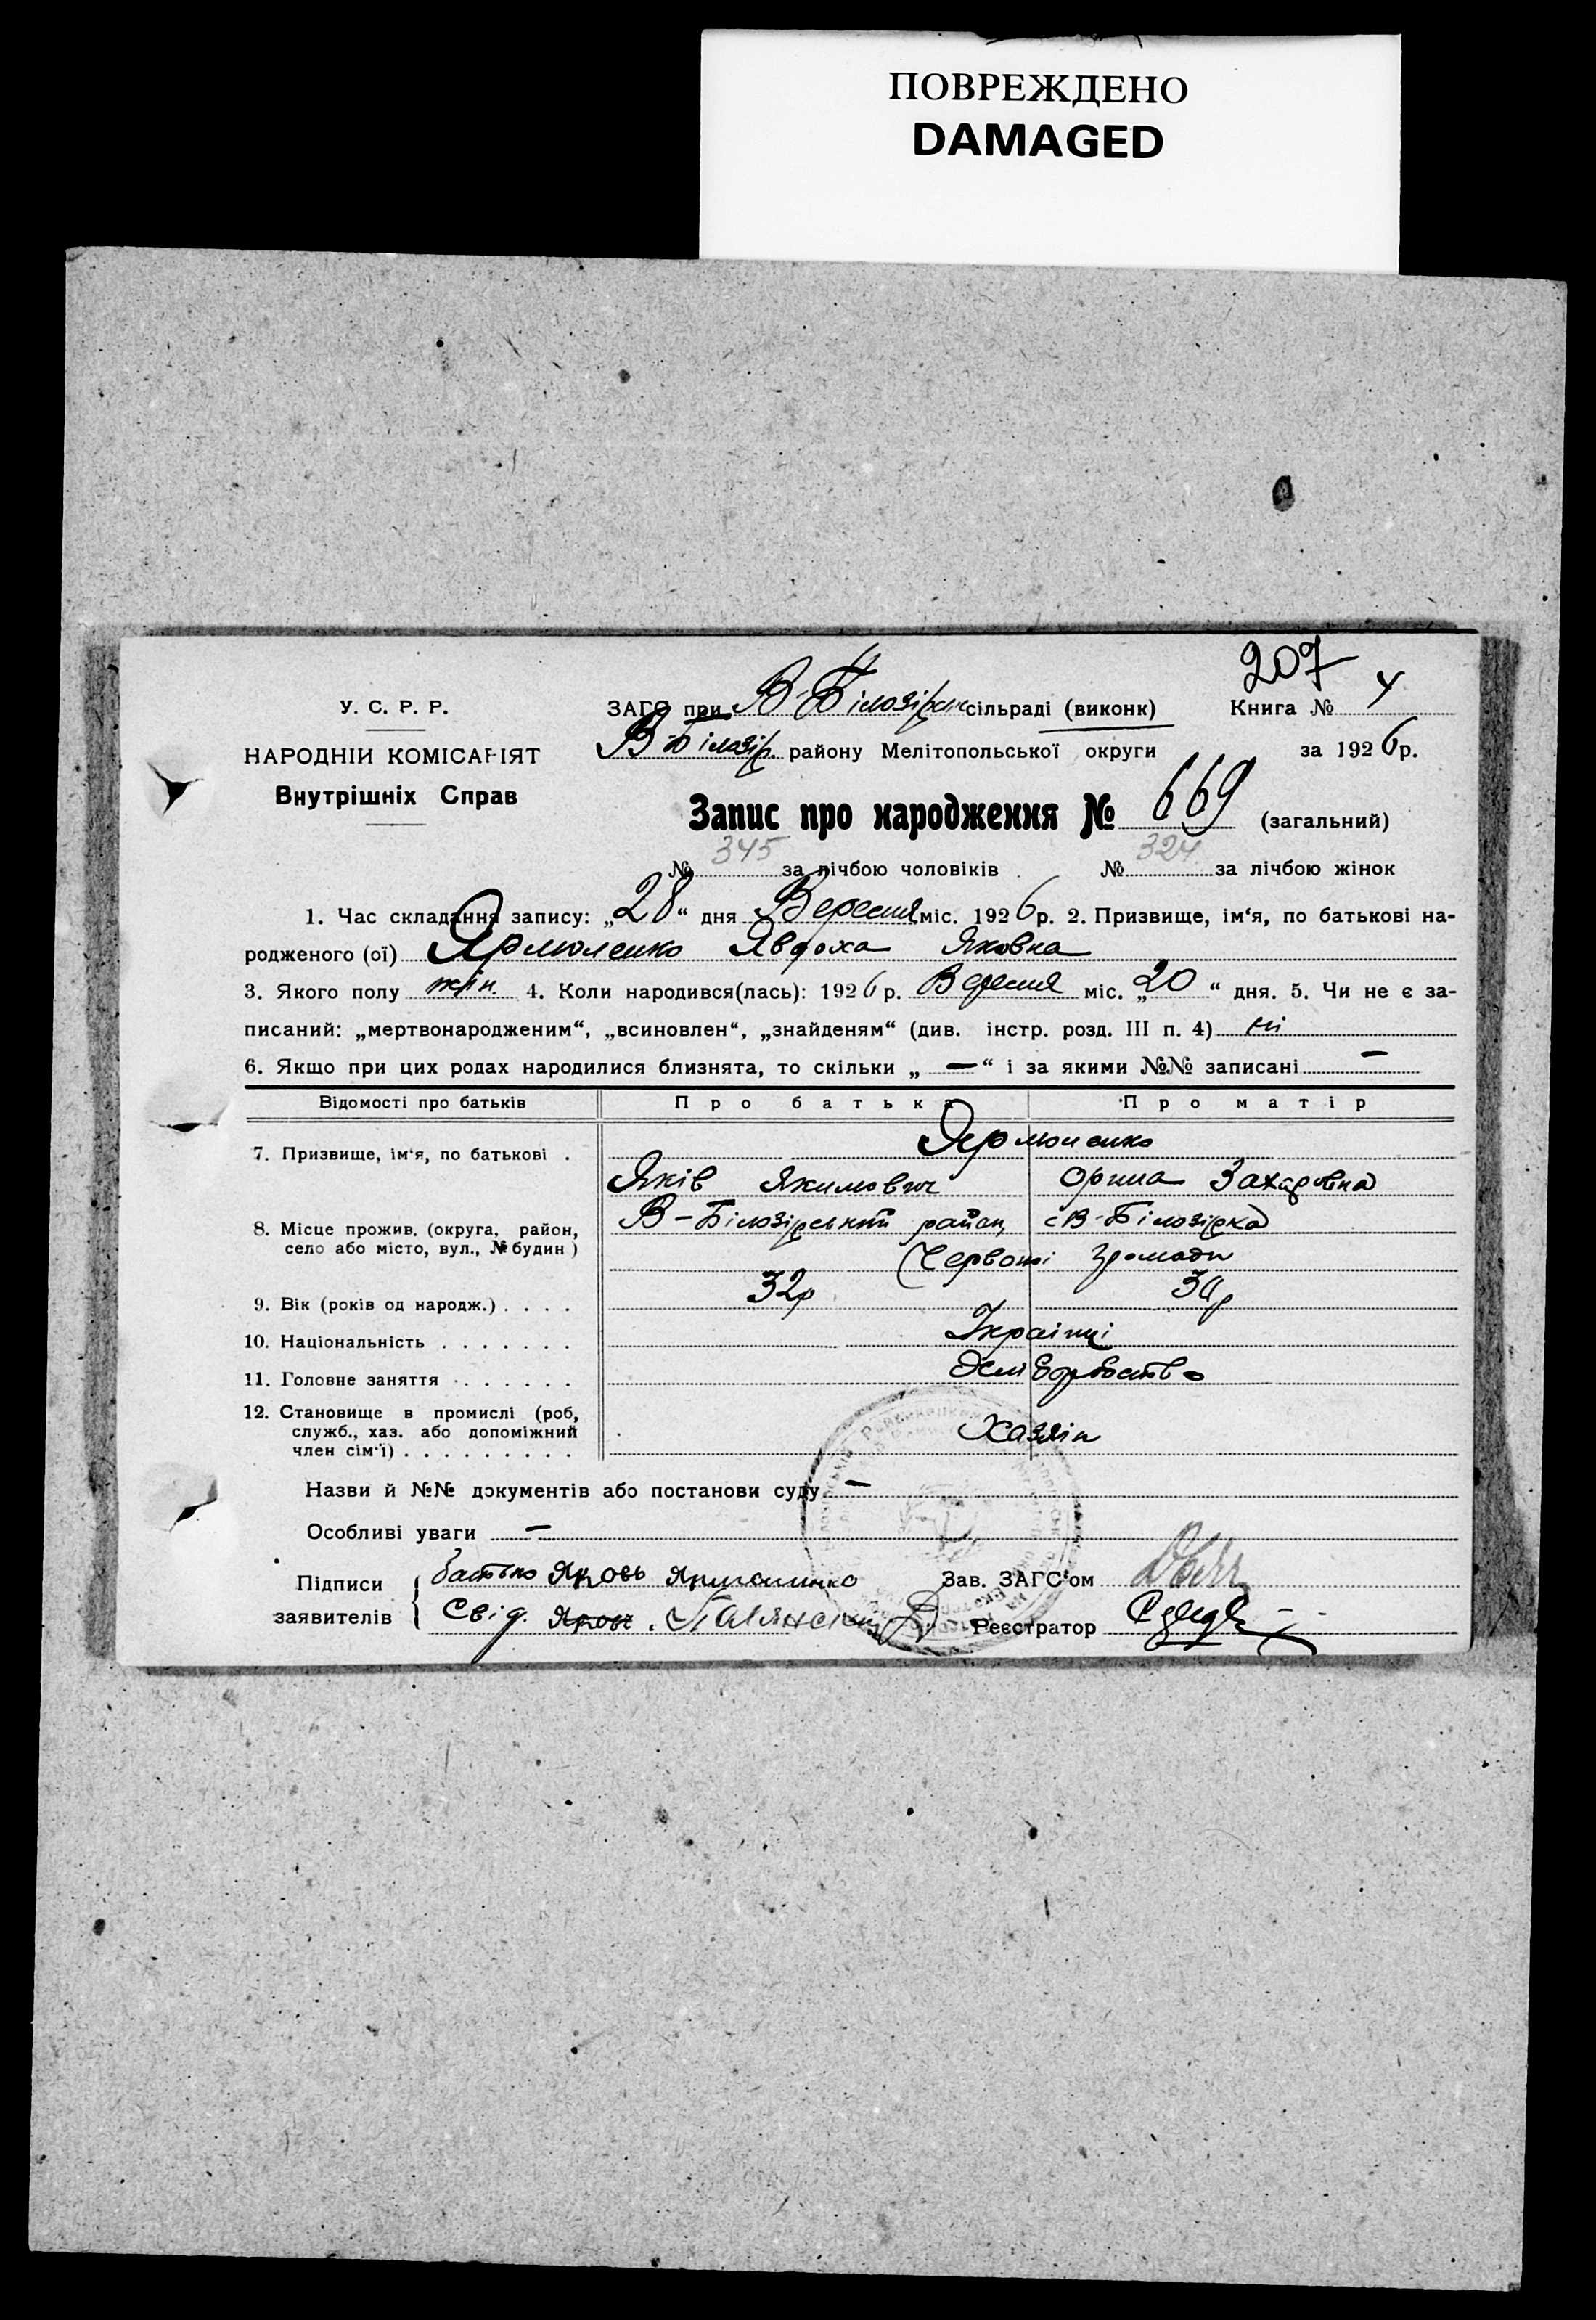 ПОВРЕЖДЕНО
DAMAGED
207
У. С. Р. Р.
НАРОДНІЙ КОМІСАРІЯТ
Внутрішніх Справ
ЗАГС при В-Білозірск сільраді (виконк) Книга № 4
В-Білозір. району Мелітопольської округи за 1926 р.
Запис про народження № 669 (загальний)
№ 345 за лічбою чоловіків № 324 за лічбою жінок
1. Час складання запису: „28“ дня Вересня міс. 1926 р. 2. Призвище, ім‘я, по батькові на-
родженого (ої) Ярмоленко Явдоха Яковна
3. Якого полу жін. 4. Коли народився(лась): 1926 р. Вересня міс. „20“ дня. 5. Чи не є за-
писаний: „мертвонародженим“, „всиновлен“, „знайденям“ (див. інстр. розд. III п. 4) ні
6. Якщо при цих родах народилися близнята, то скільки „—“ і за якими №№ записані —
Відомості про батьків Про батька Про матір
7. Призвище, ім‘я, по батькові . Ярмоленко
Яків Якимович Орина Захаровна
8. Місце прожив. (округа, район, село або місто, вул., № будин) В-Білозірський район, с В-Білозірка
Червоної громади
9. Вік (років од народж.) . . . . 32р 30р
10. Національність . . . . . . . Українці
11. Головне заняття . . . . . . 
12. Становище в промислі (роб, служб., хаз. або допоміжний член сім‘ї) . . . . . . . . . Хазяїн
Назви й №№ документів або постанови суду —
Особливі уваги —
Підписи заявителів { батько Яковь Зав. ЗАГС‘ом
Свід. Яковь. Реєстратор